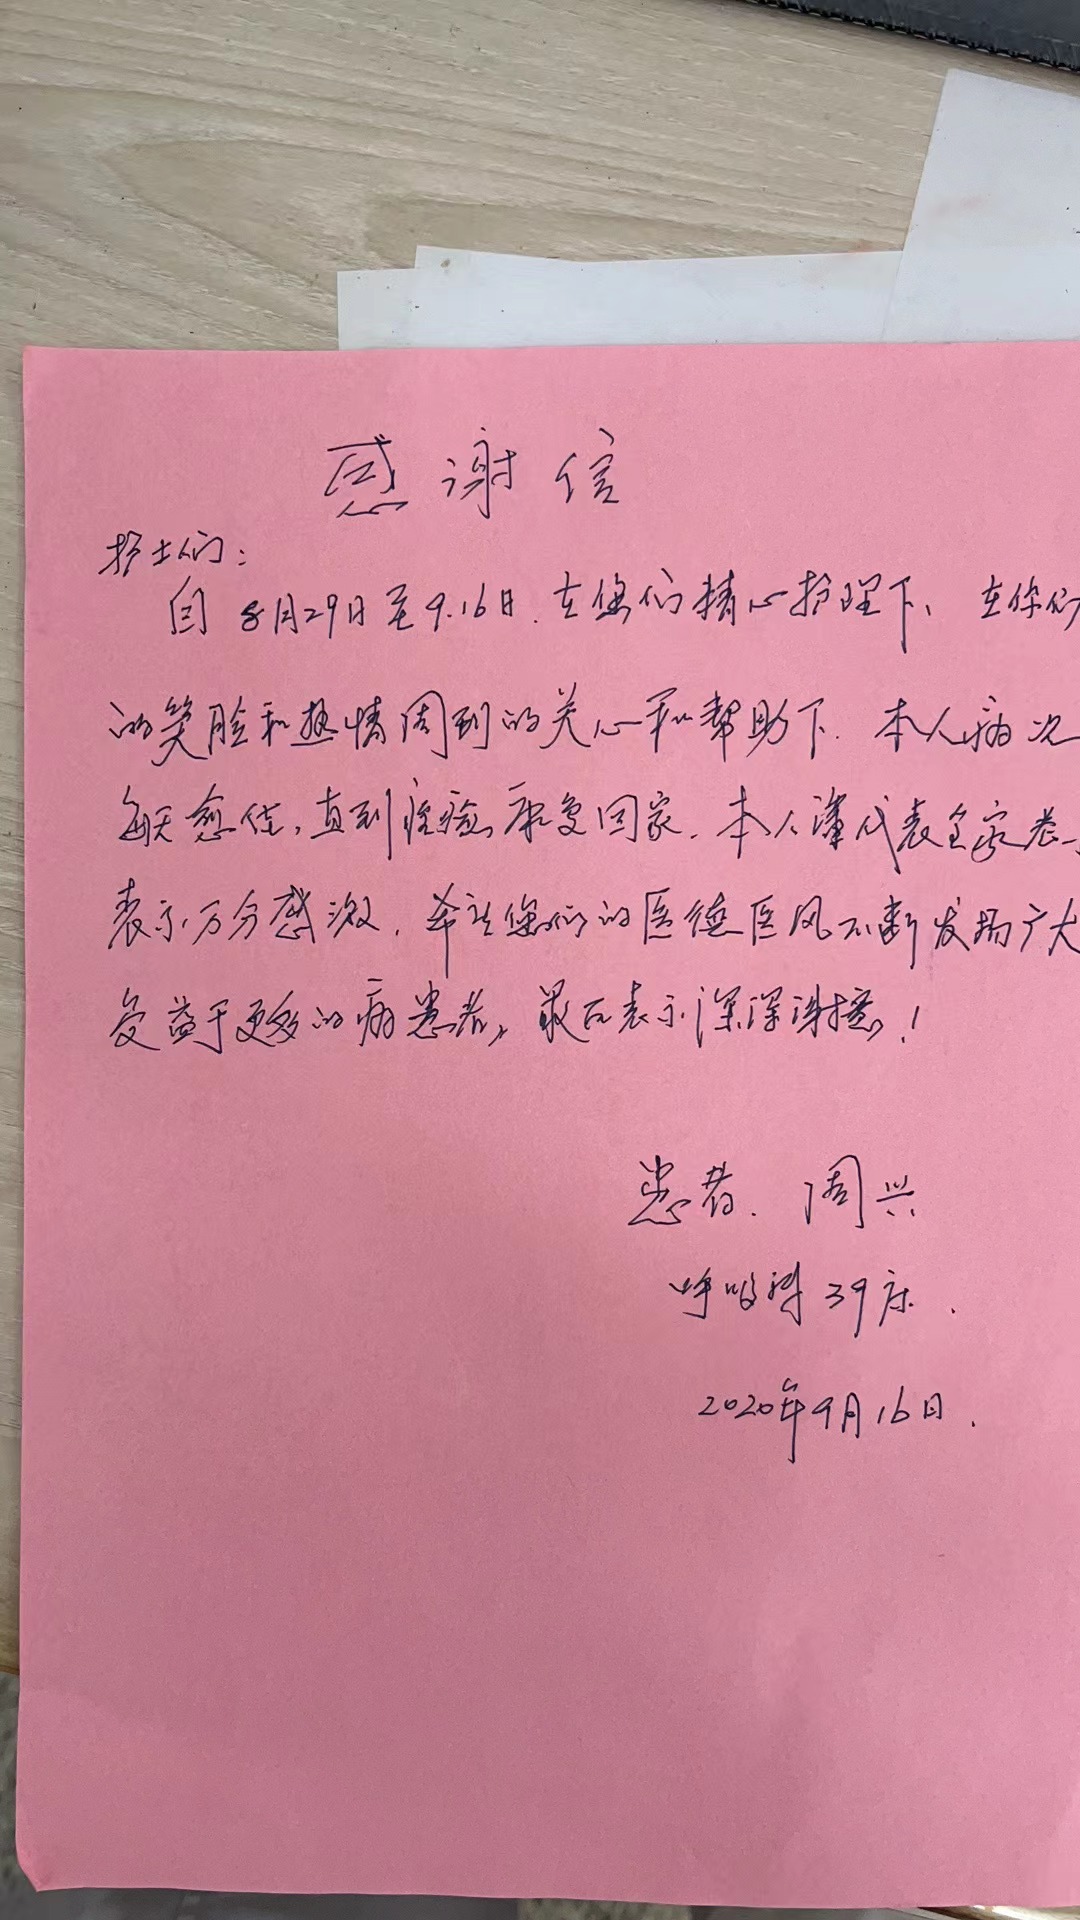 感谢信
护士们：
自8月29日至9.16日.在您们精心护理下、在你们
的笑脸和热情周到的关心和帮助下.本人病况
每天愈佳,直到痊愈康复回家.本人谨代表全家
表示万分感激.希望您们的医德医风不断发扬广大
受益于更多的病患者,最后表示深深谢意!
患者.周兴
呼吸科39床.
2020年9月16日.